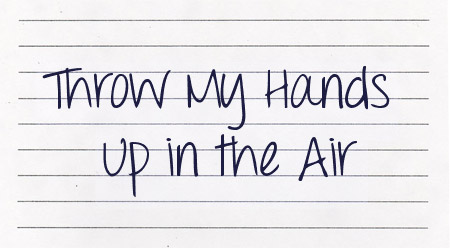 Throw My Hands
Up in the Air